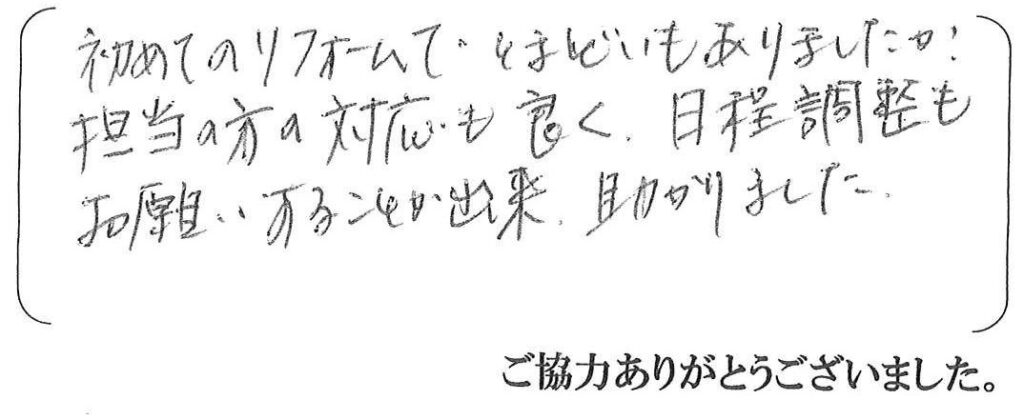 初めてのリフォームで、とまどいもありましたが、
担当の方の対応も良く、日程調整も
お願いすることが出来、助かりました。
ご協力ありがとうございました。